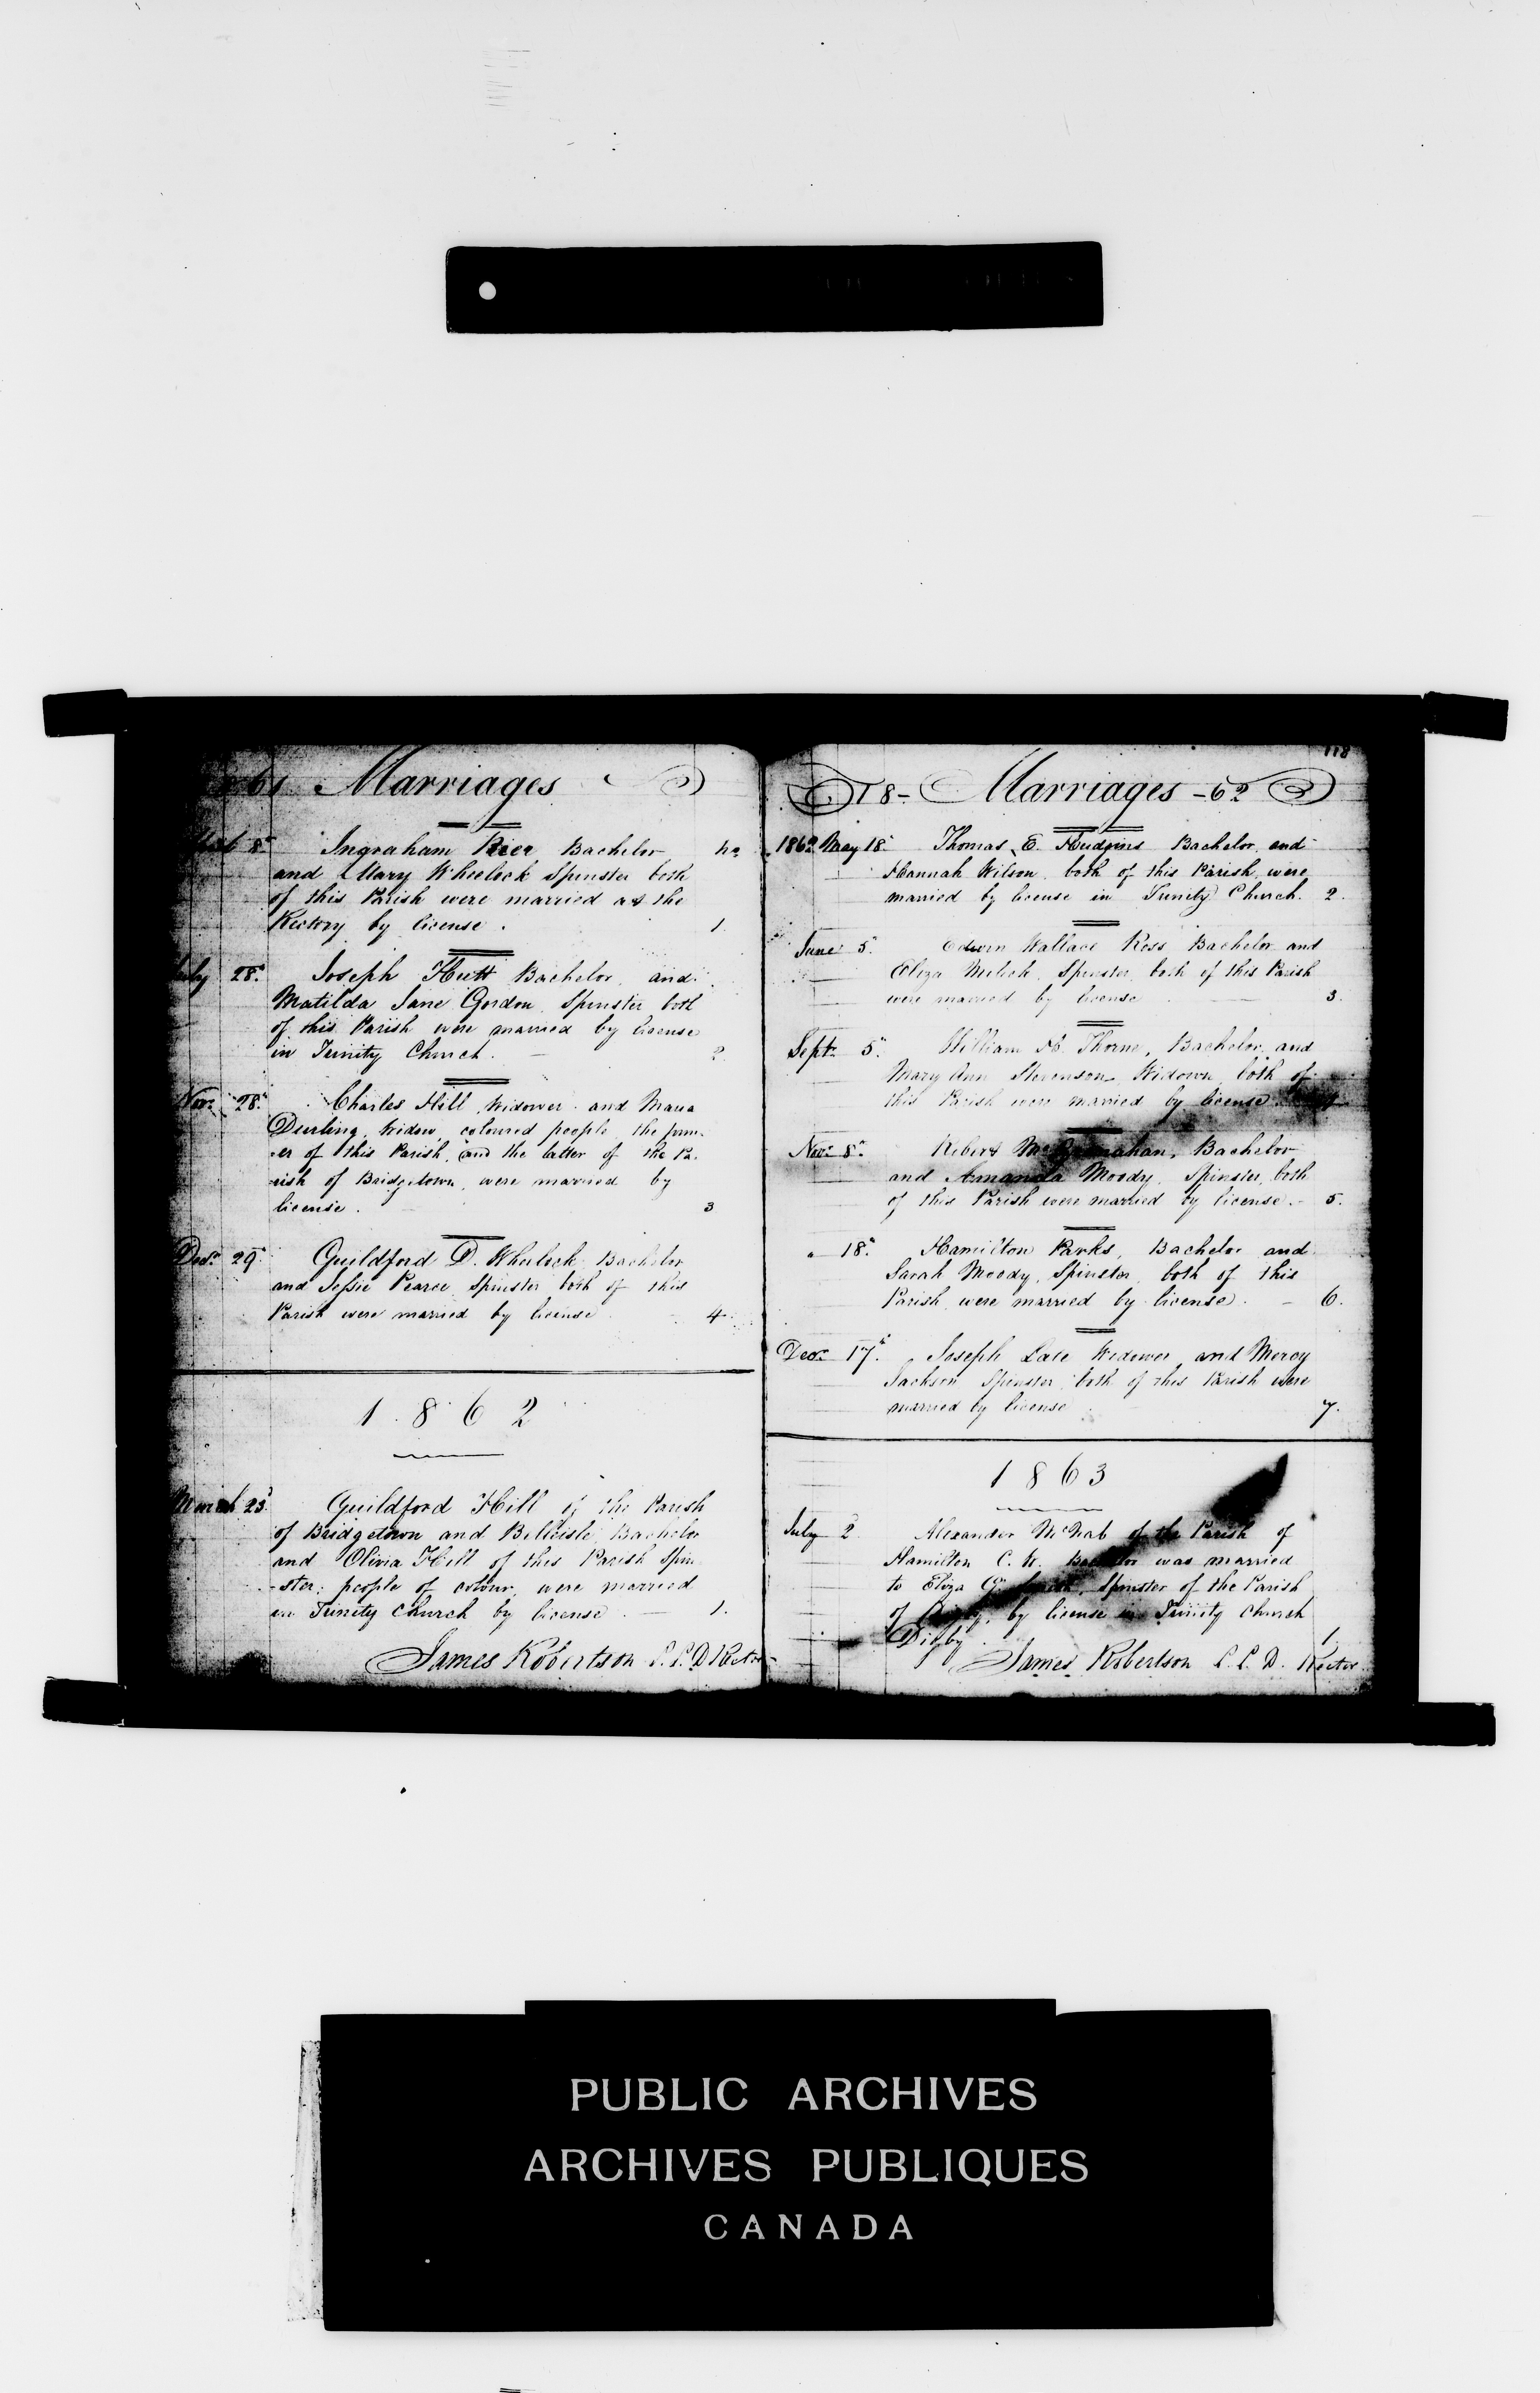 61 Marriages
8th Ingraham Rice Bachelor No
and Mary Wheelock Spinster both
of this Parish were married at the
Rectory by license. 1.
July 28th Joseph Hutt Bachelor and
Matilda Jane Gordon Spinster both
of this Parish were married by license
in Trinity Church. 2.
Novr 28th Charles Hill Widower and Maria
Durling, Widow, coloured people the form-
er of this Parish, and the latter of the Pa-
rish of Bridgetown were married by
license. 3
Decr 29th Guildford D. Wheelock Bachelor
and Jessie Pearce Spinster both of this
Parish were married by license 4
1862
March 23d Guildford Hill of the Parish
of Bridgetown and Belleisle, Bachelor
and Olivia Hill of this Parish Spin-
-ster; people of colour, were married
in Trinity Church by license. 1.
James Robertson L.L.D Rector
118
18- Marriages -62
1862 May 18th Thomas E. Hudgins Bachelor and
Hannah Wilson both of this Parish, were
married by license in Trinity Church. 2.
June 5th Edwin Wallace Ross Bachelor and
Eliza Spinster, both of this Parish
were married by license 3.
Septr 5th William H. Thorne, Bachelor, and
Mary Ann Stevenson, Widow, both of
this Parish were married by license. 4
Novr 8th Robert Bachelor
and Amanda Moody, Spinster, both
of this Parish were married by license. - 5.
" 18th Hamilton Parks, Bachelor and
Sarah Moody, Spinster, both of this
Parish, were married by license. - 6.
Decr 17th Joseph Widower and Mercy
Jackson Spinster both of this Parish were
married by license 7.
1863
July 2 Alexander McNab of the Parish of
Hamilton C. W. Bachelor was married
to Eliza Spinster of the Parish
of Digby, by license in Trinity Church
Digby. 1
James Robertson L.L.D. Rector
PUBLIC ARCHIVES
ARCHIVES PUBLIQUES
CANADA